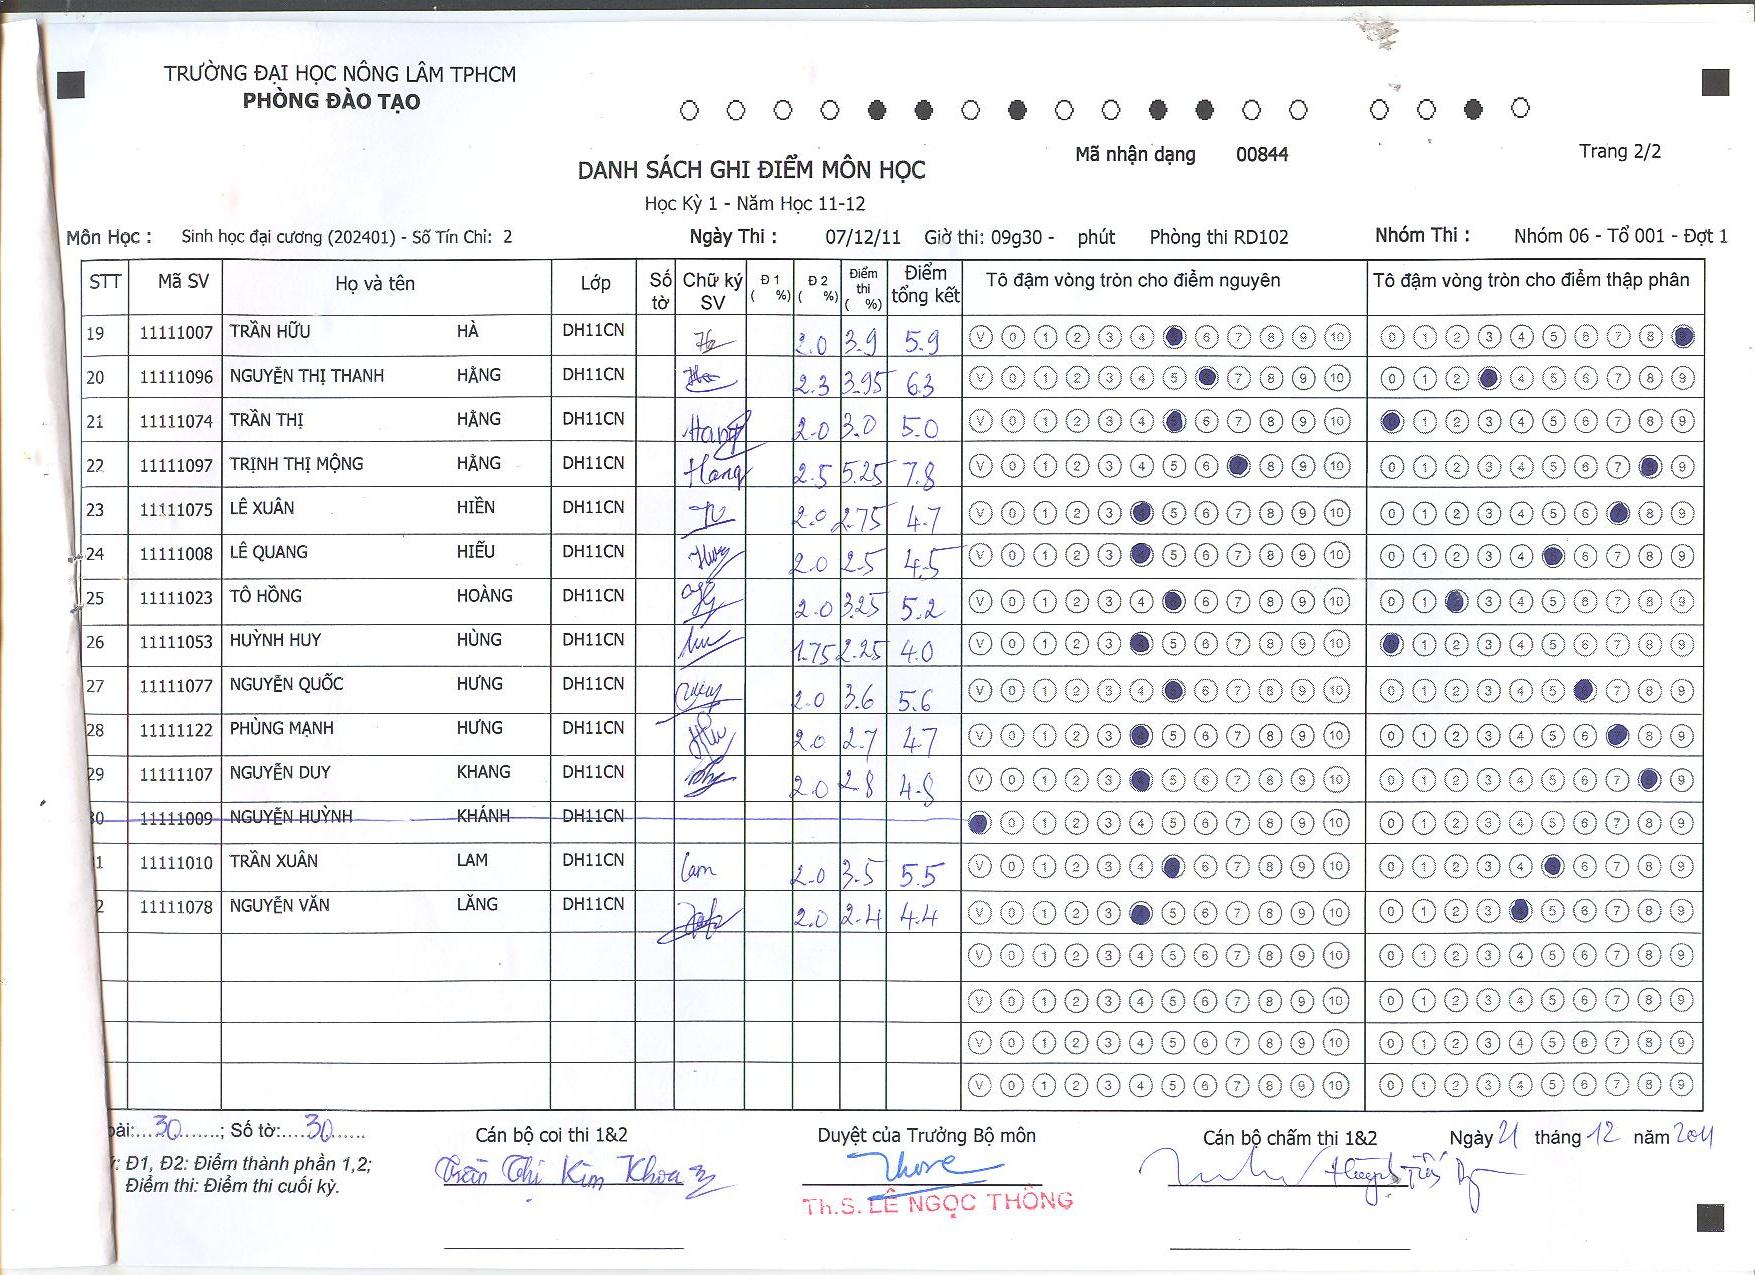 TRƯỜNG ĐẠI HỌC NÔNG LÂM TPHCM
PHÒNG ĐÀO TẠO
Mã nhận dạng 00844 Trang 2/2
DANH SÁCH GHI ĐIỂM MÔN HỌC
Học Kỳ 1 - Năm Học 11-12
Môn Học : Sinh học đại cương (202401) - Số Tín Chỉ: 2 Ngày Thi : 07/12/11 Giờ thi: 09g30 - phút Phòng thi RD102 Nhóm Thi : Nhóm 06 - Tổ 001 - Đợt 1
STT Mã SV Họ và tên Lớp Số tờ Chữ ký SV Đ 1 ( %) Đ 2 ( %) Điểm thi ( %) Điểm tổng kết Tô đậm vòng tròn cho điểm nguyên Tô đậm vòng tròn cho điểm thập phân
19 11111007 TRẦN HỮU HÀ DH11CN 2.0 3.9 5.9 V 0 1 2 3 4 6 7 8 9 10 0 1 2 3 4 5 6 7 8
20 11111096 NGUYỄN THỊ THANH HẰNG DH11CN 2.3 3.95 6.3 V 0 1 2 3 4 5 7 8 9 10 0 1 2 4 5 6 7 8 9
21 11111074 TRẦN THỊ HẰNG DH11CN Hang 2.0 3.0 5.0 V 0 1 2 3 4 6 7 8 9 10 1 2 3 4 5 6 7 8 9
22 11111097 TRỊNH THỊ MỘNG HẰNG DH11CN Hang 2.5 5.25 7.8 V 0 1 2 3 4 5 6 8 9 10 0 1 2 3 4 5 6 7 9
23 11111075 LÊ XUÂN HIỀN DH11CN 2.0 2.75 4.7 V 0 1 2 3 5 6 7 8 9 10 0 1 2 3 4 5 6 8 9
24 11111008 LÊ QUANG HIẾU DH11CN 2.0 2.5 4.5 V 0 1 2 3 5 6 7 8 9 10 0 1 2 3 4 6 7 8 9
25 11111023 TÔ HỒNG HOÀNG DH11CN 2.0 3.25 5.2 V 0 1 2 3 4 6 7 8 9 10 0 1 3 4 5 6 7 8 9
26 11111053 HUỲNH HUY HÙNG DH11CN 1.75 2.25 4.0 V 0 1 2 3 5 6 7 8 9 10 1 2 3 4 5 6 7 8 9
27 11111077 NGUYỄN QUỐC HƯNG DH11CN 2.0 3.6 5.6 V 0 1 2 3 4 6 7 8 9 10 0 1 2 3 4 5 7 8 9
28 11111122 PHÙNG MẠNH HƯNG DH11CN 2.0 2.7 4.7 V 0 1 2 3 5 6 7 8 9 10 0 1 2 3 4 5 6 8 9
29 11111107 NGUYỄN DUY KHANG DH11CN 2.0 2.8 4.8 V 0 1 2 3 5 6 7 8 9 10 0 1 2 3 4 5 6 7 9
30 11111009 NGUYỄN HUỲNH KHÁNH DH11CN 0 1 2 3 4 5 6 7 8 9 10 0 1 2 3 4 5 6 7 8 9
1 11111010 TRẦN XUÂN LAM DH11CN Lam 2.0 3.5 5.5 V 0 1 2 3 4 6 7 8 9 10 0 1 2 3 4 6 7 8 9
2 11111078 NGUYỄN VĂN LĂNG DH11CN 2.0 2.4 4.4 V 0 1 2 3 5 6 7 8 9 10 0 1 2 3 5 6 7 8 9
V 0 1 2 3 4 5 6 7 8 9 10 0 1 2 3 4 5 6 7 8 9
V 0 1 2 3 4 5 6 7 8 9 10 0 1 2 3 4 5 6 7 8 9
V 0 1 2 3 4 5 6 7 8 9 10 0 1 2 3 4 5 6 7 8 9
V 0 1 2 3 4 5 6 7 8 9 10 0 1 2 3 4 5 6 7 8 9
bài:...30.......; Số tờ:....30...... Cán bộ coi thi 1&2 Duyệt của Trưởng Bộ môn Cán bộ chấm thi 1&2 Ngày 21 tháng 12 năm 2011
: Đ1, Đ2: Điểm thành phần 1,2; Trần Thị Kim Khoa
Điểm thi: Điểm thi cuối kỳ. Th.S. LÊ NGỌC THÔNG